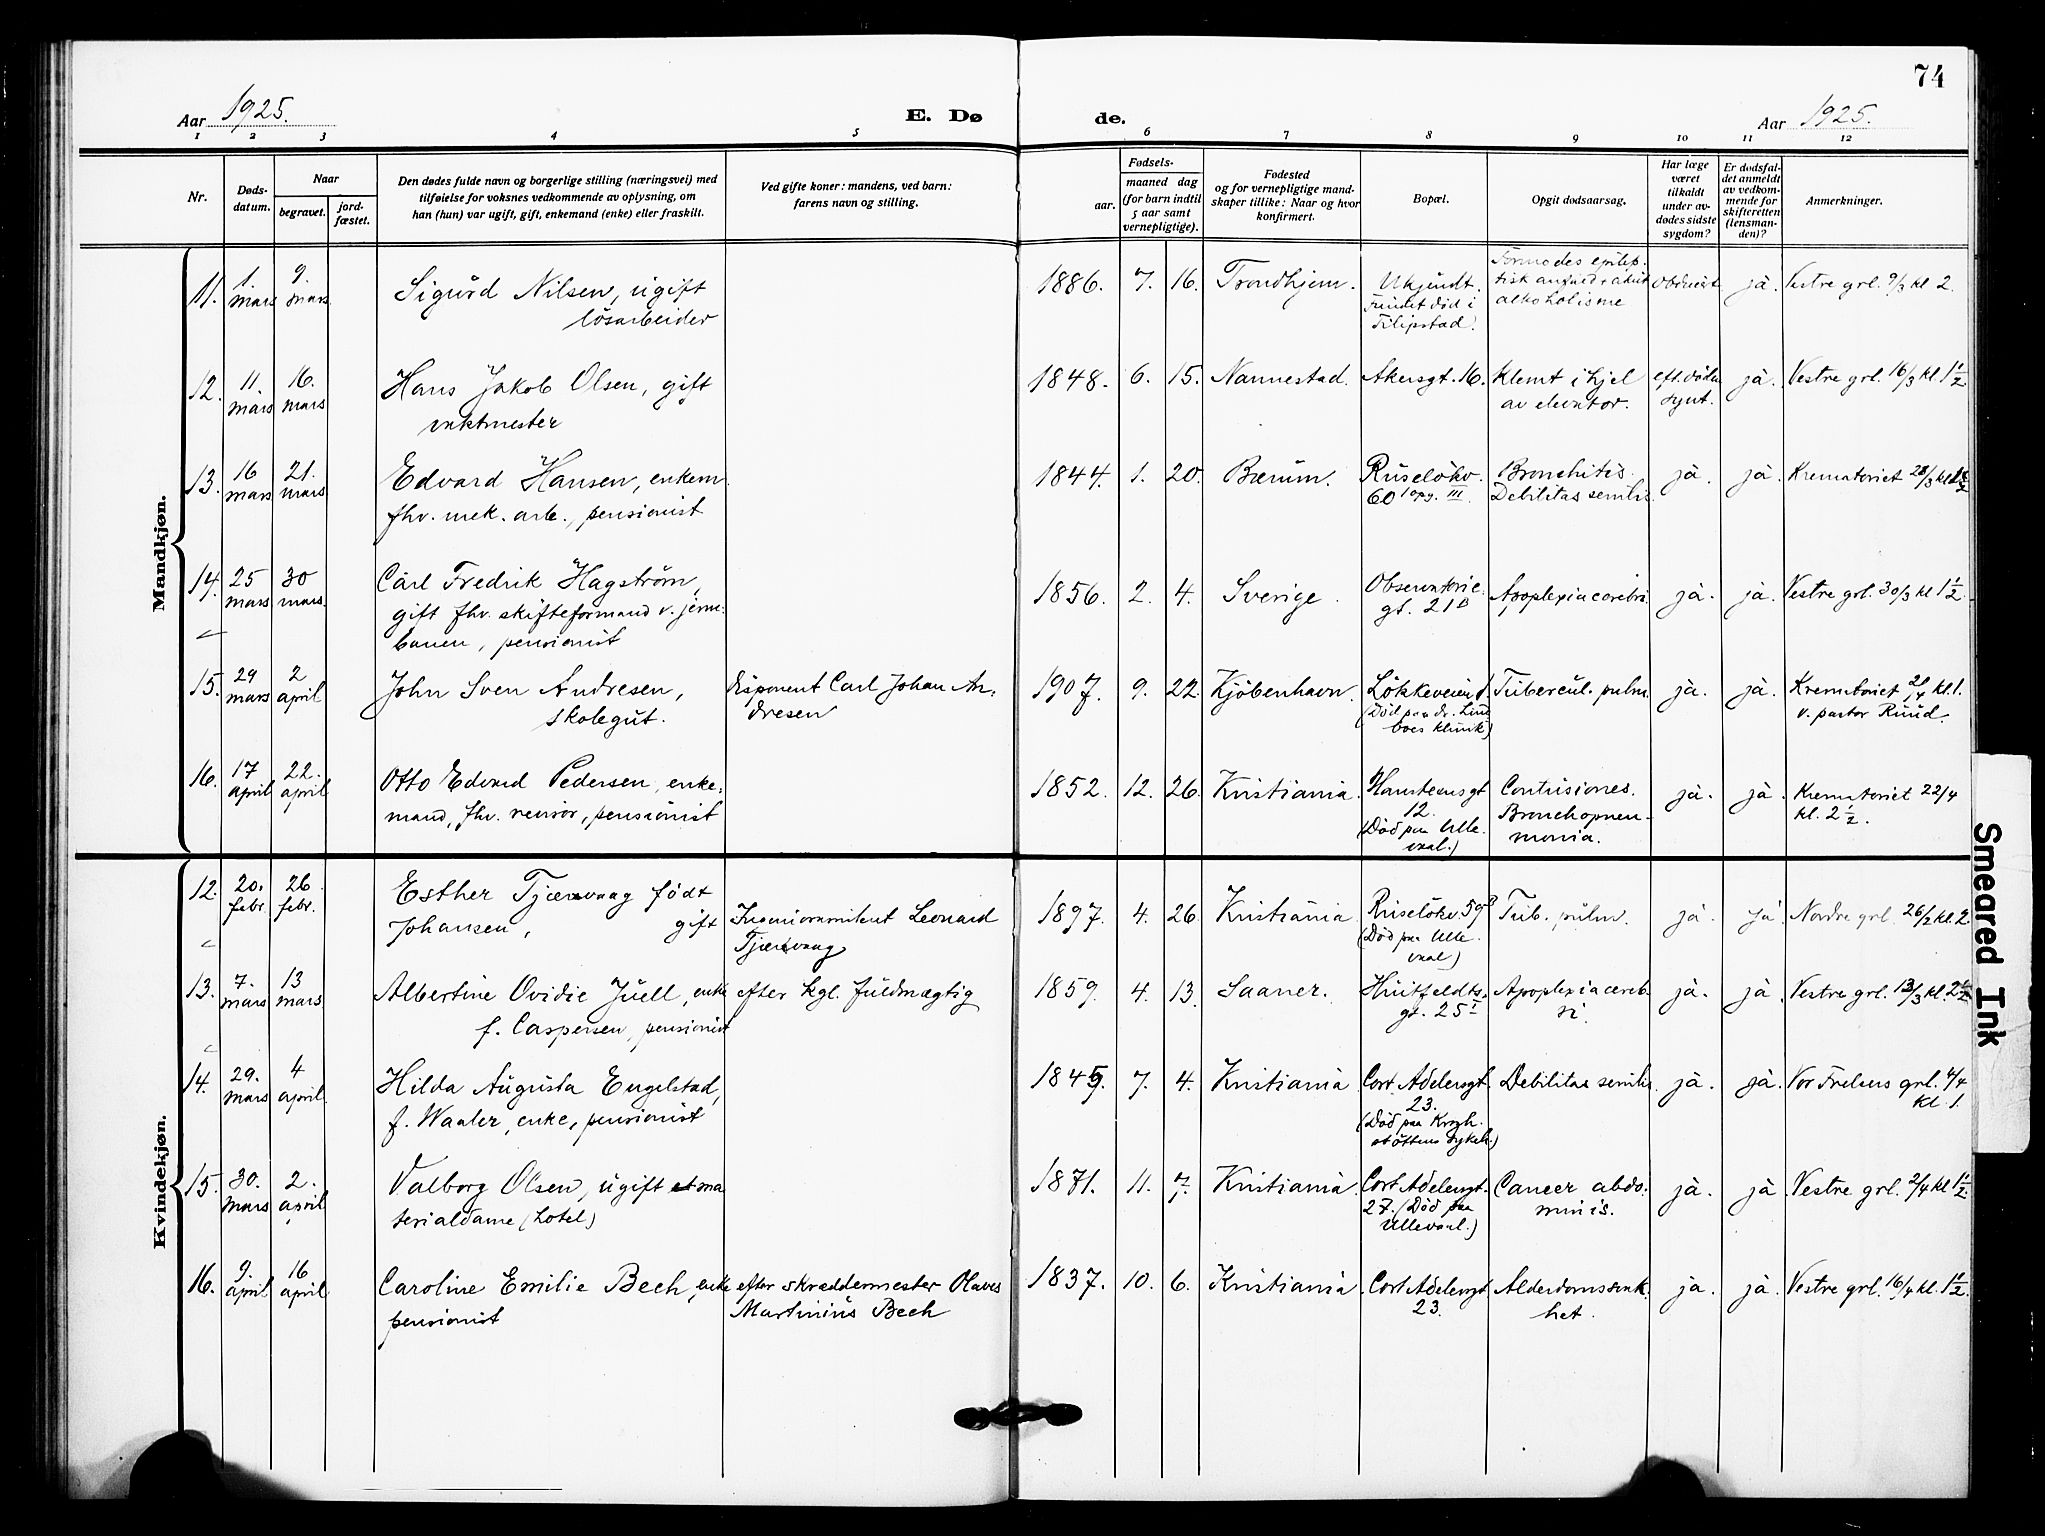 74
Aar 1925.
E. Døde.
Aar 1925.
1 2 3 4 5 6 7 8 9 10 11 12
Nr.
Døds-
datum.
Naar
begravet.
jord-
fæstet.
Den dødes fulde navn og borgerlige stilling (næringsvei) med
tilføielse for voksnes vedkommende av oplysning, om
han (hun) var ugift, gift, enkemand (enke) eller fraskilt.
Ved gifte koner: mandens, ved barn:
farens navn og stilling.
Fødsels-
aar.
maaned dag
(for barn indtil
5 aar samt
vernepligtige).
Fødested
og for vernepligtige mand-
skaper tillike: Naar og hvor
konfirmert.
Bopæl.
Opgit dødsaarsag.
Har læge
været
tilkaldt
under av-
dødes sidste
sygdom?
Er dødsfal-
det anmeldt
av vedkom-
mende for
skifteretten
(lensman-
den)?
Anmerkninger.
Mandkjøn.
11. 1. mars 9. mars
Sigurd Nilsen, ugift
løsarbeider
1886. 7. 16. Trondhjem.
Ukjendt.
Fundet død i
Filipstad.
Formodes epilep-
tisk anfald + akut
alkoholisme
obduceret ja. Vestre grl. 9/3 kl 2.
12. 11. mars 16. mars
Hans Jakob Olsen, gift
vaktmester
1848. 6. 15. Nannestad. Akersgt. 16.
Klemt ihjel
av elevator.
eft. døden
synt.
ja. Vestre grl. 16/3 kl. 1 1/2
13. 16 mars 21. mars
Edvard Hansen, enkem.
fhv. mek. arb., pensionist
1844. 1. 20. Bærum.
Ruseløkv.
60 opg. III.
Bronchitis.
Debilitas senilis.
ja. ja. Krematoriet
14. 25 mars 30 mars.
Carl Fredrik Hagstrøm,
gift fhv. skifteformand v. jern-
banen, pensionist
1856. 2. 4. Sverige.
Observatorie-
gt. 21 B
Apoplexia cerebri.
ja. ja. Vestre grl. 30/3 kl 1 1/2.
15. 29 mars 2 april
John Sven Andresen,
skolegut.
disponent Carl Johan An-
dresen
1907. 9. 22. Kjøbenhavn.
Løkkeveien
(Død paa dr. Lind
boes klinik)
Tubercul. pulm.
ja. ja. Krematoriet kl. 1.
v. pastor Ruud.
16. 17 april 22. april
Otto Edvard Pedersen, enke-
mand, fhv. revisor, pensionist
1852. 12. 26. Kristiania.
Hansteensgt
12.
(Død paa Ulle-
vaal.)
Contusiones.
Bronchopneu-
monia.
ja. ja. Krematoriet 22/4
kl. 2 1/2.
Kvindekjøn.
12. 20. febr. 26. febr.
Esther Tjærvaag født
Johansen, gift
Leonard
Tjærvaag
1897. 4. 26 Kristiania
Ruseløkv. 59 B
(Død paa Ulle-
vaal)
Tub. pulm.
ja. ja. Nordre grl 26/2 kl. 2.
13. 7. mars 13 mars
Albertine Ovidie Juell, enke
f. Caspersen, pensionist
efter kgl. fuldmægtig
1859. 4. 13. Saaner.
Huitfeldts
gt. 25 I
Apoplexia cereb-
ri.
ja. ja. Vestre grl. 13/3 kl. 2 1/2
14. 29. mars 4 april
Hilda Augusta Engelstad,
f. Waaler, enke, pensionist
1845. 7. 4. Kristiania
Cort Adelersgt.
23.
(Død paa Krogh-
støttens sykeh.)
Debilitas senilis.
ja. ja. Vor Frelsers grl. 4/4
kl. 1.
15. 30. mars 2. april
Valborg Olsen, ugift ma
terialdame (hotel)
1871. 11. 7. Kristiania.
Cort Adelersgt.
27. (Død paa
Ullevaal.)
Cancer abdo-
minis.
ja. ja Vestre grl. 2/4 kl 1 1/2.
16. 9. april 16 april
Caroline Emilie Bech, enke
pensionist
efter skræddermester Olaves
Martinius Bech
1837. 10. 6. Kristiania.
Cort Adelersgt
23.
Alderdomssvak-
het.
ja. ja. Vestre grl. 16/4 kl. 1 1/2.
Smeared Ink